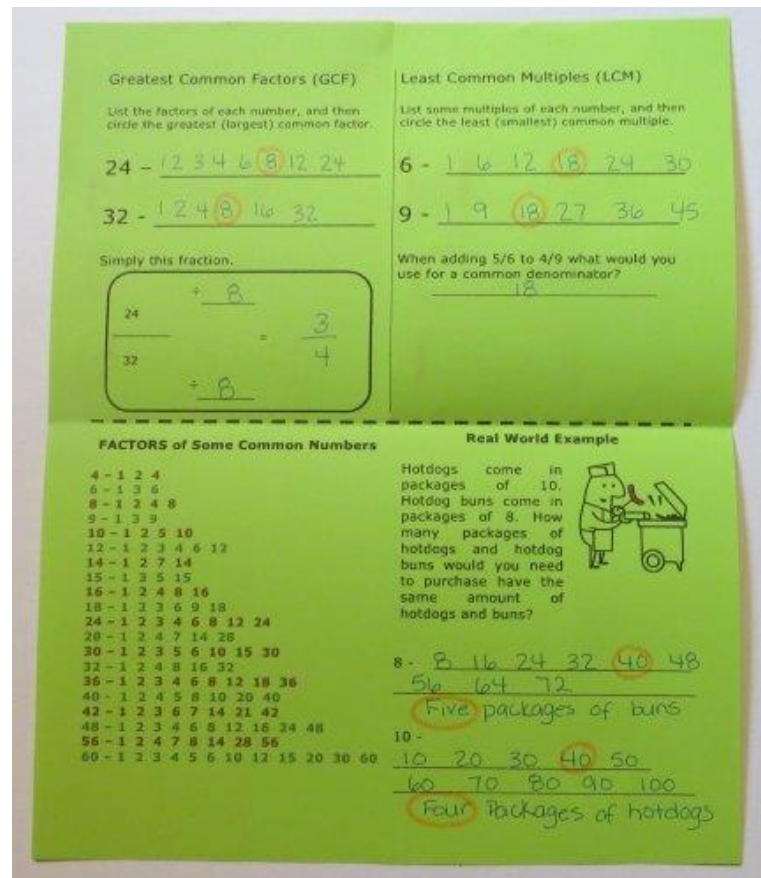 Greatest Common Factors (GCF)
List the factors of each number, and then
circle the greatest (largest) common factor.
24 – 1 2 3 4 6 8 12 24
32 - 1 2 4 8 16 32
Simply this fraction.
÷ 8
24
32
=
3
4
÷ 8
Least Common Multiples (LCM)
List some multiples of each number, and then
circle the least (smallest) common multiple.
6 - 1 6 12 18 24 30
9 - 1 9 18 27 36 45
When adding 5/6 to 4/9 what would you
use for a common denominator?
18
FACTORS of Some Common Numbers
4 – 1 2 4
6 – 1 3 6
8 – 1 2 4 8
9 – 1 3 9
10 – 1 2 5 10
12 – 1 2 3 4 6 12
14 – 1 2 7 14
15 – 1 3 5 15
16 – 1 2 4 8 16
18 – 1 2 3 6 9 18
24 – 1 2 3 4 6 8 12 24
28 – 1 2 4 7 14 28
30 – 1 2 3 5 6 10 15 30
32 – 1 2 4 8 16 32
36 – 1 2 3 4 6 8 12 18 36
40 – 1 2 4 5 8 10 20 40
42 – 1 2 3 6 7 14 21 42
48 – 1 2 3 4 6 8 12 16 24 48
56 – 1 2 4 7 8 14 28 56
60 – 1 2 3 4 5 6 10 12 15 20 30 60
Real World Example
Hotdogs come in
packages of 10.
Hotdog buns come in
packages of 8. How
many packages of
hotdogs and hotdog
buns would you need
to purchase have the
same amount of
hotdogs and buns?
8 - 8 16 24 32 40 48
56 64 72
Five packages of buns
10 -
10 20 30 40 50
60 70 80 90 100
Four Packages of hotdogs